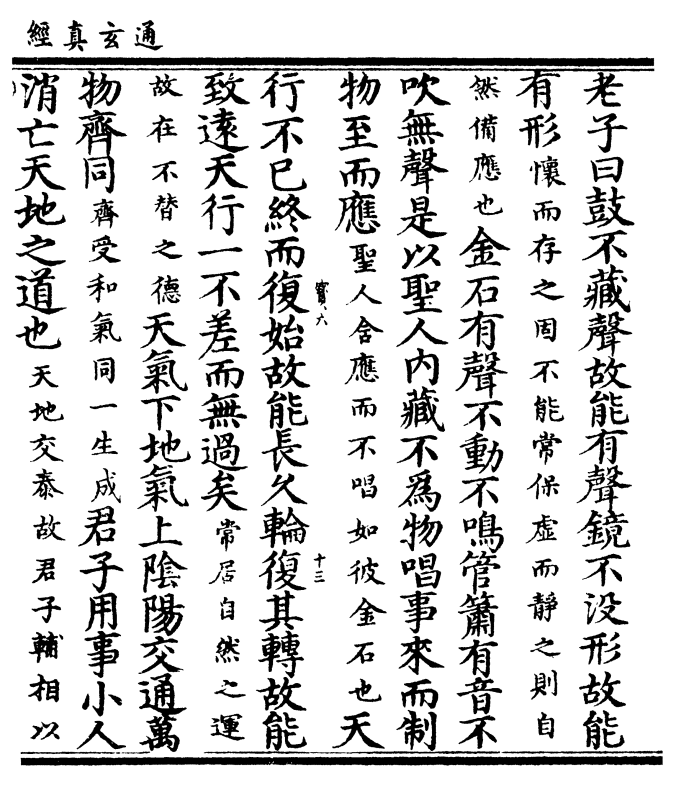 通玄真經
老子曰鼓不藏聲故能有聲鏡不没形故能
有形懷而存之固不能常保虛而靜之則自
然備應也金石有聲不動不鳴管簫有音不
吹無聲是以聖人內藏不爲物唱事來而制
物至而應聖人含應而不唱如彼金石也天
行不已終而復始故能長久輪復其轉故能
寳六
十三
致遠天行一不差而無過矣常居自然之運
故在不替之德天氣下地氣上陰陽交通萬
物齊同齊受和氣同一生成君子用事小人
消亡天地之道也天地交泰故君子輔相以